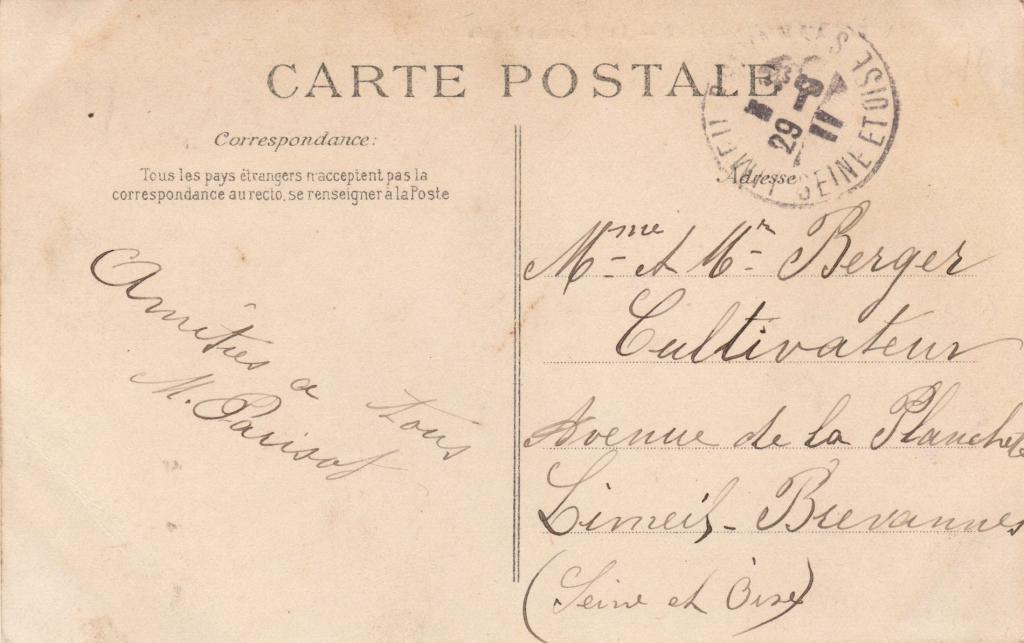 CARTE POSTALE
Correspondance:
Tous les pays étrangers n'acceptent pas la
correspondance au recto, se renseigner à la Poste
Amitiés a tous
M. Parisot
Adresse
Mme et Mr Berger
Cultivateur
Avenue de la Planchette
Limeil-Brevannes
(Seine et Oise)
SEINE ET OISE
29
11